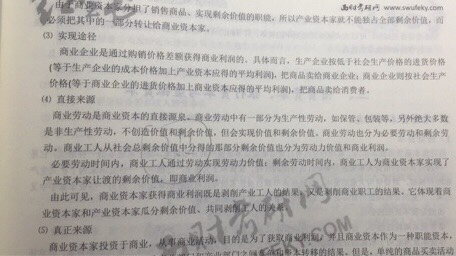 西财考研网 www.swufeky.com
由于商业资本家分担了销售商品、实现剩余价值的职能，所以产业资本家就不能独占全部剩余价值，而
必须把其中的一部分转让给商业资本家。
(3) 实现途径
商业企业是通过购销价格差额获得商业利润的。具体而言，生产企业按低于社会生产价格的进货价格
(等于生产企业的成本价格加上产业资本应得的平均利润)，把商品卖给商业企业；商业企业则按社会生产
价格(等于商业企业的进货价格加上商业资本应得的平均利润)，把商品卖给消费者。
(4) 直接来源
商业劳动是商业资本的直接源泉。商业劳动中有一部分为生产性劳动，如保管、包装等，另外绝大多数
是非生产性劳动，不创造价值和剩余价值，但会实现价值和剩余价值。商业劳动也分为必要劳动和剩余劳
动。商业工人从社会总剩余价值中分得的那部分剩余价值也分为劳动力价值和商业利润。
必要劳动时间内，商业工人通过劳动实现劳动力价值；剩余劳动时间内，商业工人为商业资本家实现了
产业资本家让渡的剩余价值，即商业利润。
由此可见，商业资本家获得商业利润既是剥削产业工人的结果，又是剥削商业职工的结果。它体现着商
业资本家和产业资本家瓜分剩余价值、共同剥削工人的关系。
(5) 真正来源
商业资本家投资于商业，从事商业活动，目的是为了获取商业利润，并且商业资本作为一种职能资本，
和商业部门之间 资本转移的结果。但是，单纯的商品买卖活动